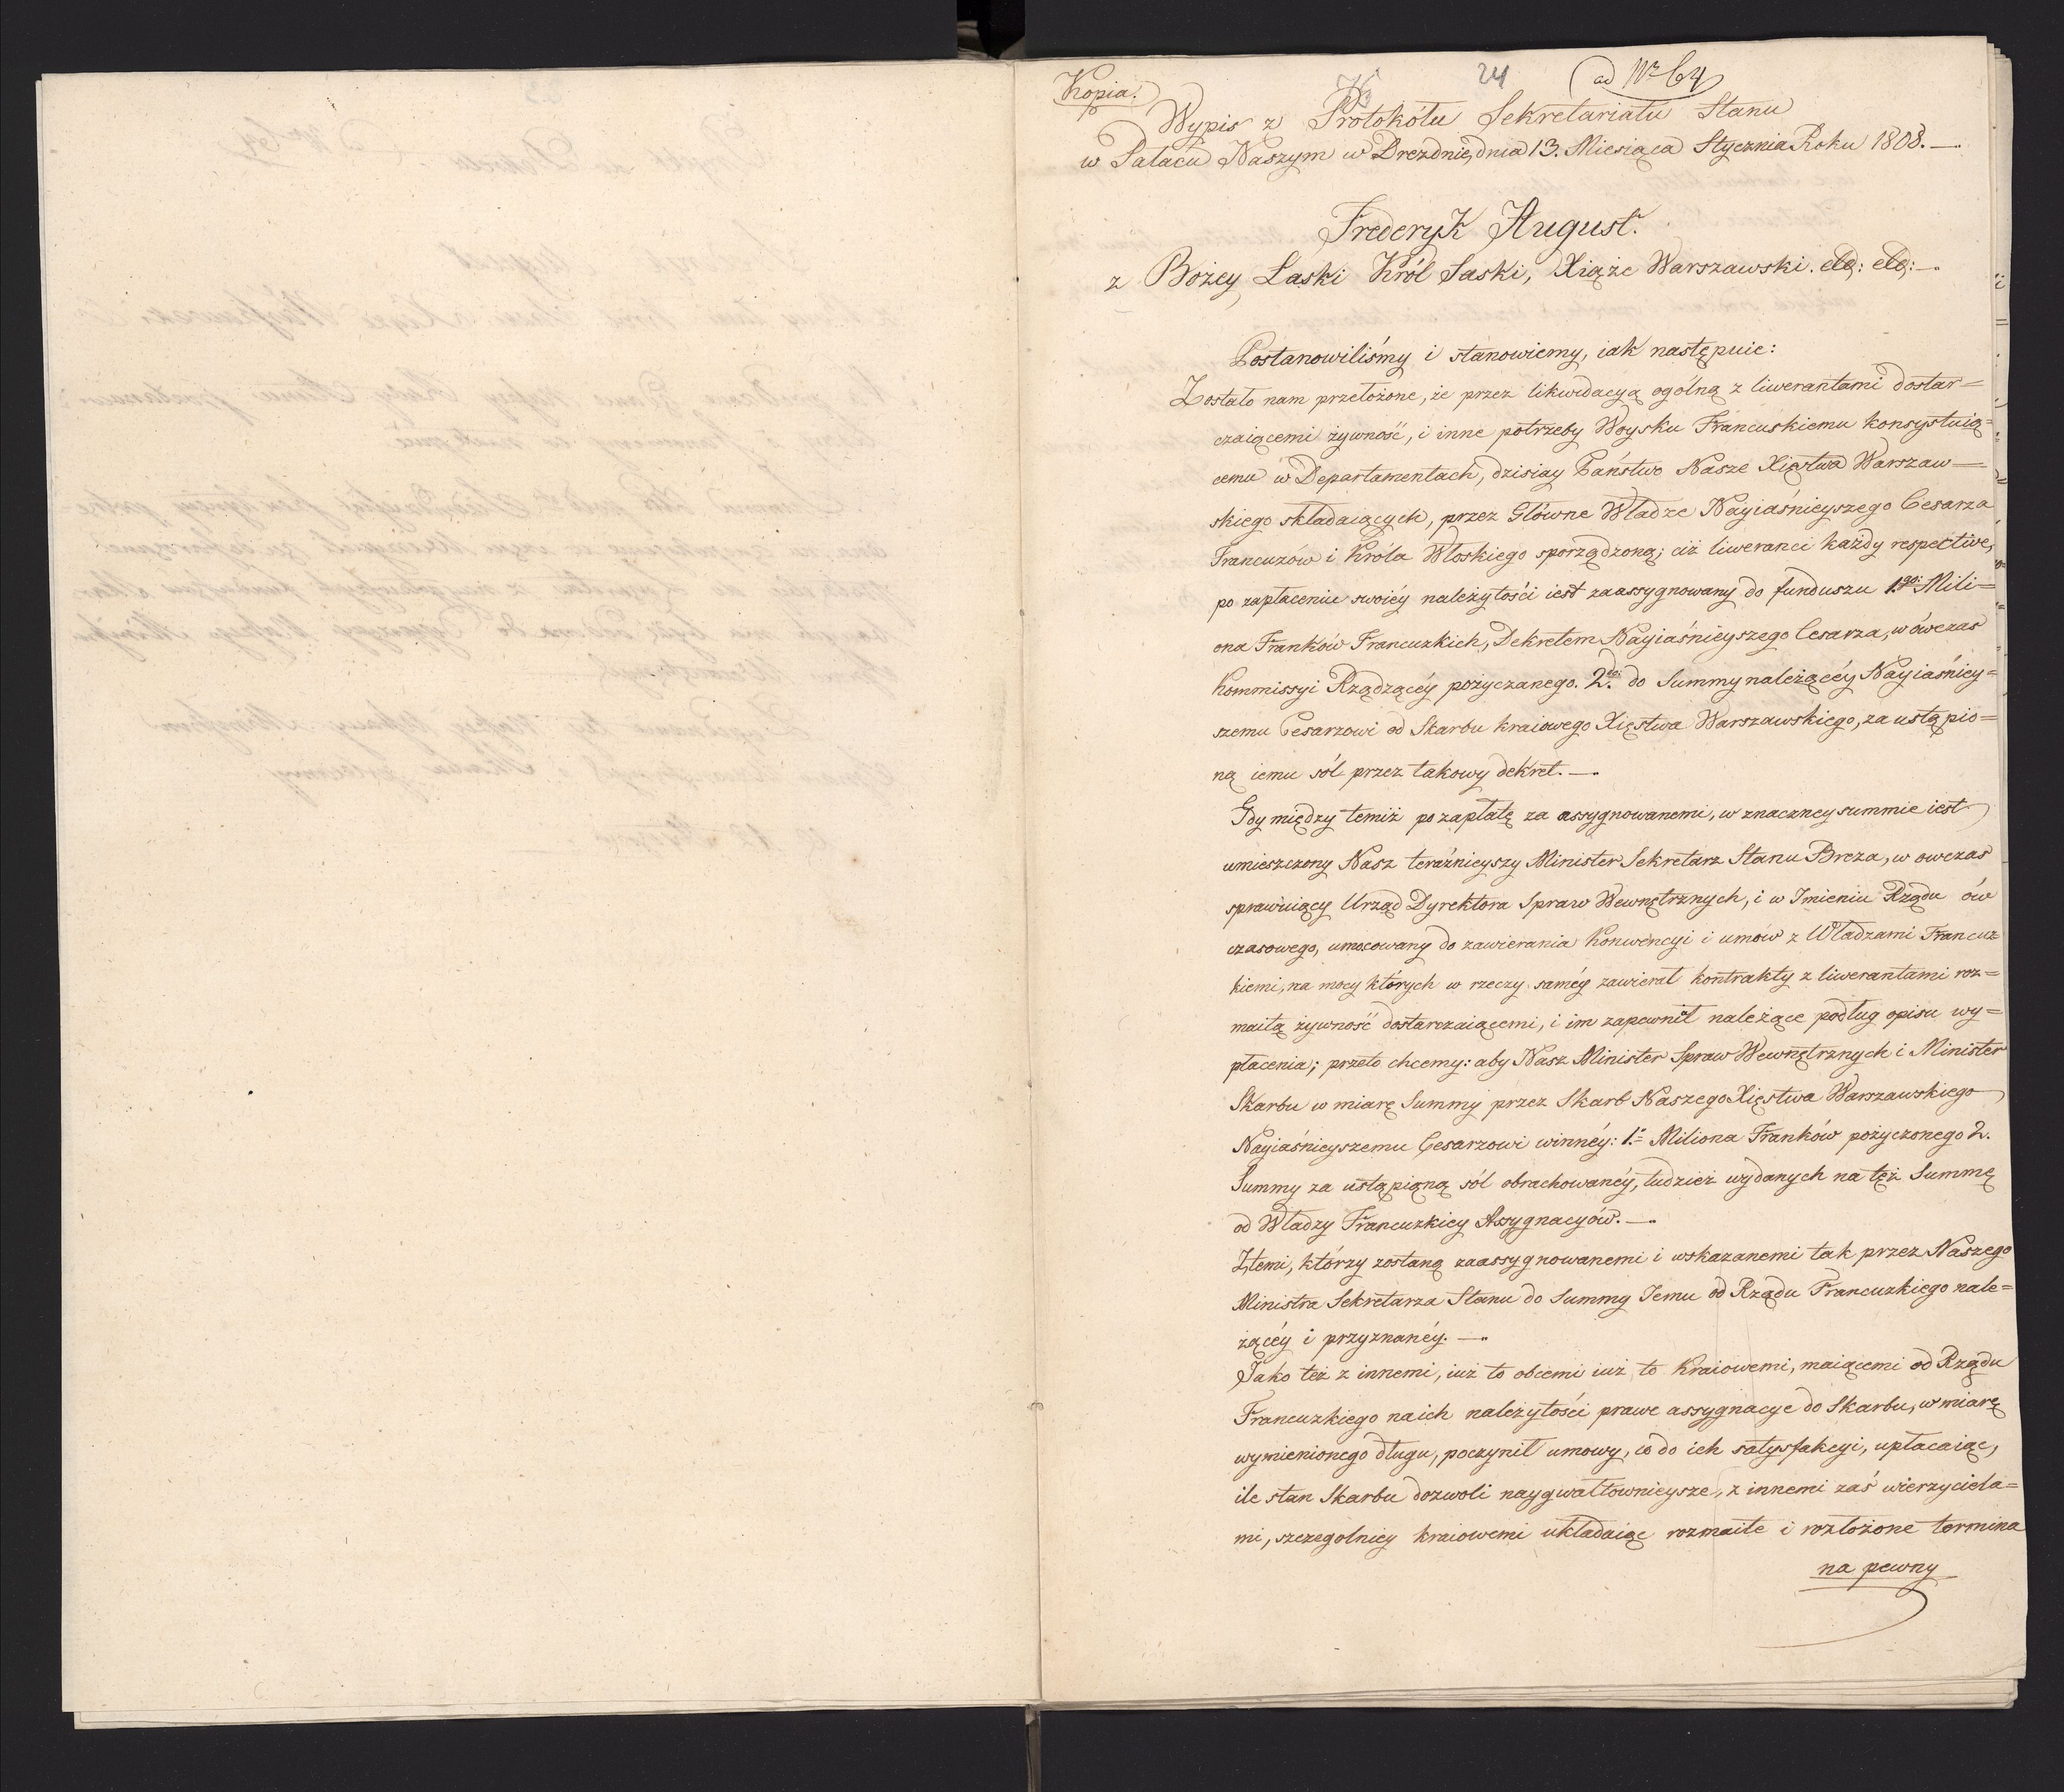 Kopia.
24
ad Nr 64
Wypis z Protokółu Sekretariatu Stanu
w Pałacu Naszym w Dreznie, dnia 13. Miesiąca Stycznia Roku 1808. —
Frederyk August.
z Bożey Łaski Król Saski, Xiąże Warszawski. etc: etc: —
Postanowiliśmy i stanowiemy, iak następuie:
Zostało nam przełożone, że przez likwidacyą ogólną z liwerantami dostar=
czaiącemi żywność, i inne potrzeby Woysku Francuskiemu konsystuią=
cemu w Departamentach, dzisiay Państwo Nasze Xięstwa Warszaw=
skiego składaiących, przez Główne Władze Nayiaśnieyszego Cesarza
Francuzów i Króla Włoskiego sporządzoną; ciż liweranci każdy respective,
po zapłaceniu swoiéy należytości iest zaassygnowany do funduszu 1.go: Mili=
ona Franków Francuzkich, Dekretem Nayiaśnieyszego Cesarza, wówczas
Kommissyi Rządzącéy pożyczanego. 2.do: do Summy należącéy Nayiaśniey=
szemu Cesarzowi od Skarbu kraiowego Xięstwa Warszawskiego, za ustąpio=
ną iemu sól przez takowy dekret. —
Gdy między temiż po zapłatę za assygnowanemi, w znaczney summie iest
umieszczony Nasz teraźnieyszy Minister Sekretarz Stanu Breza, w owczas
sprawuiący Urząd Dyrektora Spraw Wewnętrznych, i w Imieniu Rządu ów
czasowego, umocowany do zawierania Konwencyi i umów z Władzami Francuz
kiemi, na mocy których w rzeczy saméy zawierał kontrakty z liwerantami roz=
maitą żywność dostarczaiącemi, i im zapewnił należące podług opisu wy=
płacenia; przeto chcemy: aby Nasz Minister Spraw Wewnętrznych i Minister
Skarbu w miarę Summy przez Skarb Naszego Xięstwa Warszawskiego
Nayiaśnieyszemu Cesarzowi winnéy: 1.= Miliona Franków pożyczonego 2.
Summy za ustąpianą sól obrachowanéy, tudzież wydanych na też Summę
od Władzy Francuzkiey Assygnacyów. —
Z temi, którzy zostaną zaassygnowanemi i wskazanemi tak przez Naszego
Ministra Sekretarza Stanu do Summy Jemu od Rządu Francuzkiego nale=
żącéy i przyznanéy. —
Jako też z innemi, iuż to obcemi iuż to Kraiowemi, maiącemi od Rządu
Francuzkiego na ich należytości prawe assygnacye do Skarbu, w miarę
wymienionego długu, poczynił umowy, co do ich satysfakcyi, upłacaiąc,
ile stan Skarbu dozwoli naygwałtownieysze, z innemi zaś wierzyciela=
mi, szczegolniey kraiowemi układaiąc rozmaite i rozłożone termina
na pewny